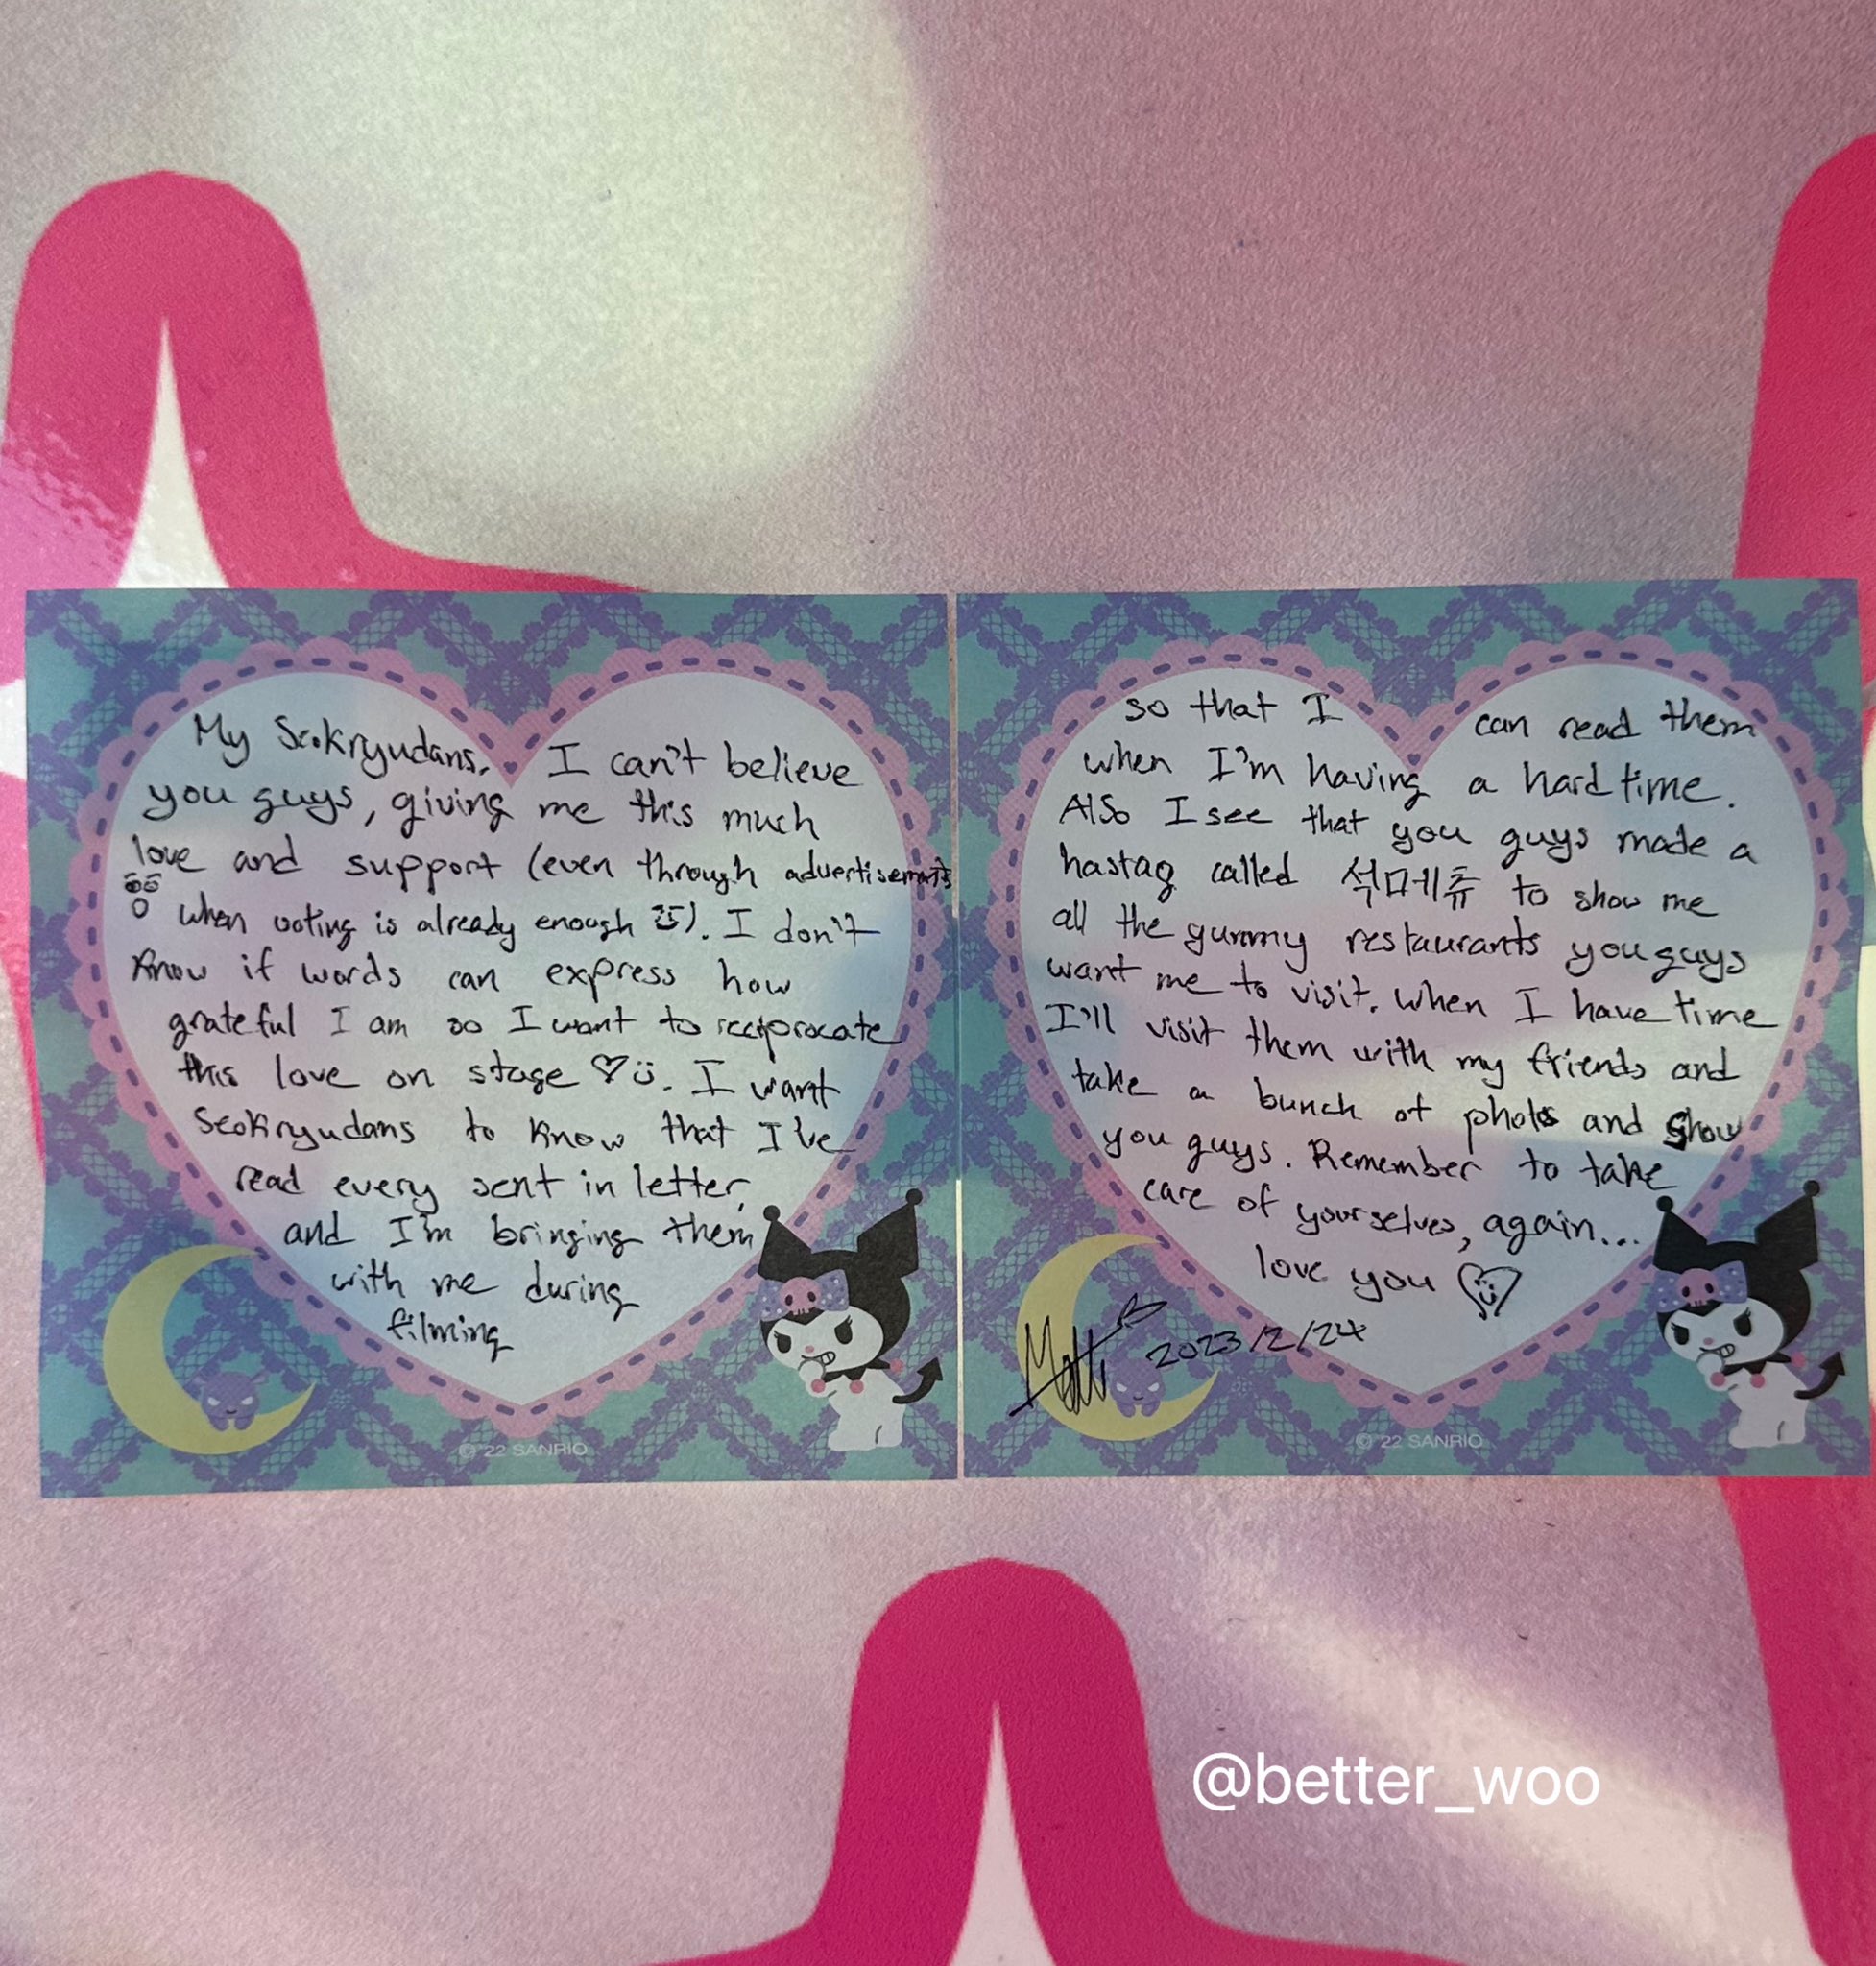 My Seokryudans, I can't believe
you guys, giving me this much
love and support (even through advertisements
when voting is already enough). I don't
know if words can express how
grateful I am so I want to reciprocate
this love on stage ♡ü. I want
Seokryudans to know that I've
read every sent in letter,
and I'm bringing them
with me during
filming
© '22 SANRIO
so that I can read them
when I'm having a hard time.
Also I see that you guys made a
hastag called 석메츄 to show me
all the yummy restaurants you guys
want me to visit. When I have time
I'll visit them with my friends and
take a bunch of photos and show
you guys. Remember to take
care of yourselves, again...
love you
Matti 2023/2/24
© '22 SANRIO
@better_woo